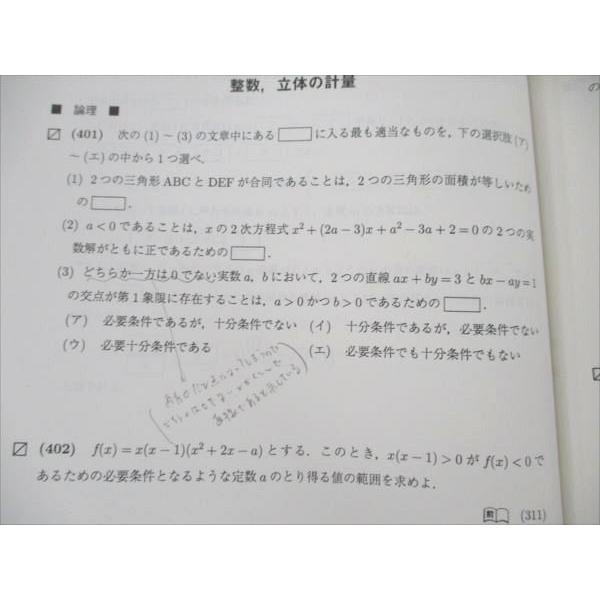 整数，立体の計量
■ 論理 ■
(401) 次の (1) ～ (3) の文章中にある に入る最も適当なものを，下の選択肢 (ア)
～ (エ) の中から 1 つ選べ．
(1) 2 つの三角形 ABC と DEF が合同であることは，2 つの三角形の面積が等しいため
の ．
(2) a < 0 であることは，x の 2 次方程式 x² + (2a − 3)x + a² − 3a + 2 = 0 の 2 つの実
数解がともに正であるための ．
(3) どちらか一方は 0 でない実数 a，b において，2 つの直線 ax + by = 3 と bx − ay = 1
の交点が第 1 象限に存在することは，a > 0 かつ b > 0 であるための ．
(ア) 必要条件であるが，十分条件でない (イ) 十分条件であるが，必要条件でない
(ウ) 必要十分条件である (エ) 必要条件でも十分条件でもない
(402) f(x) = x(x − 1)(x² + 2x − a) とする．このとき，x(x − 1) > 0 が f(x) < 0 で
あるための必要条件となるような定数 a のとり得る値の範囲を求めよ．
前 (311)
の